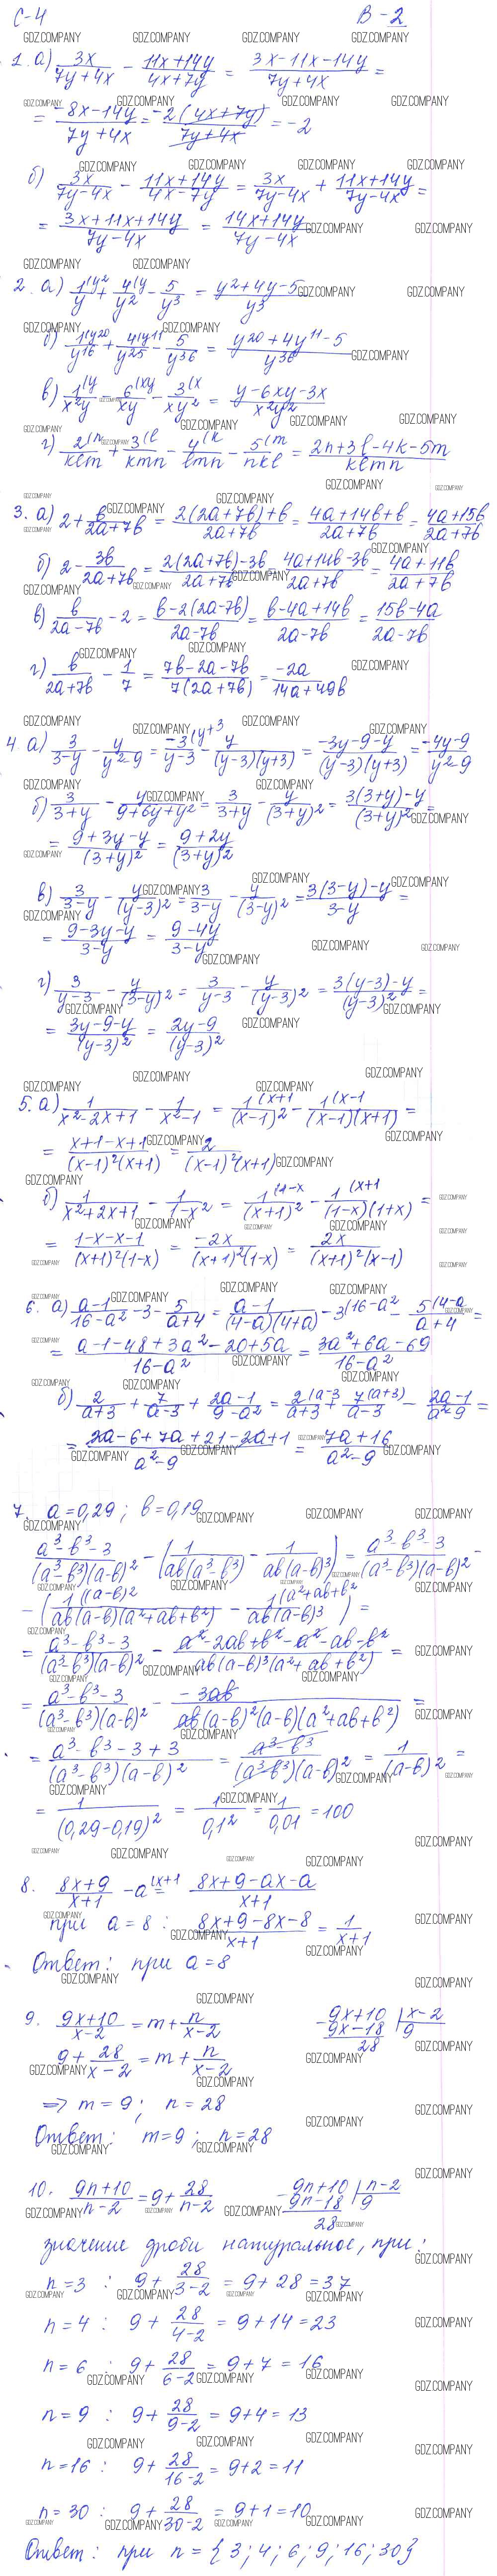 С-4 В-2
1. а) 3x/(7y+4x) - (11x+14y)/(4x+7y) = (3x-11x-14y)/(7y+4x) =
= (-8x-14y)/(7y+4x) = -2(4x+7y)/(7y+4x) = -2
б) 3x/(7y-4x) - (11x+14y)/(4x-7y) = 3x/(7y-4x) + (11x+14y)/(7y-4x) =
= (3x+11x+14y)/(7y-4x) = (14x+14y)/(7y-4x)
2. а) 1(y²/y + 4(y/y² - 5/y³ = (y²+4y-5)/y³
б) 1(y²⁰/y¹⁶ + 4(y¹¹/y²⁵ - 5/y³⁶ = (y²⁰+4y¹¹-5)/y³⁶
в) 1(y/x²y - 6(xy/xy - 3(x/xy² = (y-6xy-3x)/x²y²
г) 2(n/kℓm + 3(ℓ/kmn - 4(k/ℓmn - 5(m/nkℓ = (2n+3ℓ-4k-5m)/kℓmn
3. а) 2 + b/(2a+7b) = (2(2a+7b)+b)/(2a+7b) = (4a+14b+b)/(2a+7b) = (4a+15b)/(2a+7b)
б) 2 - 3b/(2a+7b) = (2(2a+7b)-3b)/(2a+7b) = (4a+14b-3b)/(2a+7b) = (4a+11b)/(2a+7b)
в) b/(2a-7b) - 2 = (b-2(2a-7b))/(2a-7b) = (b-4a+14b)/(2a-7b) = (15b-4a)/(2a-7b)
г) b/(2a+7b) - 1/7 = (7b-2a-7b)/(7(2a+7b)) = -2a/(14a+49b)
4. а) 3/(3-y) - y/(y²-9) = -3(y+3/(y-3) - y/((y-3)(y+3)) = (-3y-9-y)/((y-3)(y+3)) = (-4y-9)/(y²-9)
б) 3/(3+y) - y/(9+6y+y²) = 3/(3+y) - y/(3+y)² = (3(3+y)-y)/(3+y)² =
= (9+3y-y)/(3+y)² = (9+2y)/(3+y)²
в) 3/(3-y) - y/(y-3)² = 3/(3-y) - y/(3-y)² = (3(3-y)-y)/(3-y) =
= (9-3y-y)/(3-y) = (9-4y)/(3-y)
г) 3/(y-3) - y/(3-y)² = 3/(y-3) - y/(y-3)² = (3(y-3)-y)/(y-3)² =
= (3y-9-y)/(y-3)² = (2y-9)/(y-3)²
5. а) 1/(x²-2x+1) - 1/(x²-1) = 1(x+1/(x-1)² - 1(x-1/((x-1)(x+1)) =
= (x+1-x+1)/((x-1)²(x+1)) = 2/((x-1)²(x+1))
б) 1/(x²+2x+1) - 1/(1-x²) = 1(1-x/(x+1)² - 1(x+1/((1-x)(1+x)) =
= (1-x-x-1)/((x+1)²(1-x)) = -2x/((x+1)²(1-x)) = 2x/((x+1)²(x-1))
6. а) (a-1)/(16-a²) - 3 - 5/(a+4) = (a-1)/((4-a)(4+a)) - 3(16-a² - 5(4-a/(a+4) =
= (a-1-48+3a²-20+5a)/(16-a²) = (3a²+6a-69)/(16-a²)
б) 2/(a+3) + 7/(a-3) + (2a-1)/(9-a²) = 2(a-3/(a+3) + 7(a+3)/(a-3) - (2a-1)/(a²-9) =
= (2a-6+7a+21-2a+1)/(a²-9) = (7a+16)/(a²-9)
7. a=0,29; b=0,19
(a³-b³-3)/((a³-b³)(a-b)²) - (1/(ab(a³-b³)) - 1/(ab(a-b)³)) = (a³-b³-3)/((a³-b³)(a-b)²) -
- (1((a-b)²/(ab(a-b)(a²+ab+b²)) - 1(a²+ab+b²/(ab(a-b)³)) =
= (a³-b³-3)/((a³-b³)(a-b)²) - (a²-2ab+b²-a²-ab-b²)/(ab(a-b)³(a²+ab+b²)) =
= (a³-b³-3)/((a³-b³)(a-b)²) - (-3ab)/(ab(a-b)²(a-b)(a²+ab+b²)) =
= (a³-b³-3+3)/((a³-b³)(a-b)²) = (a³-b³)/((a³-b³)(a-b)²) = 1/(a-b)² =
= 1/(0,29-0,19)² = 1/0,1² = 1/0,01 = 100
8. (8x+9)/(x+1) - a(x+1 = (8x+9-ax-a)/(x+1)
при a=8: (8x+9-8x-8)/(x+1) = 1/(x+1)
Ответ: при a=8
9. (9x+10)/(x-2) = m + n/(x-2) -9x+10 | x-2
9x-18 | 9
28
9 + 28/(x-2) = m + n/(x-2)
=> m=9; n=28
Ответ: m=9; n=28
10. (9n+10)/(n-2) = 9 + 28/(n-2) -9n+10 | n-2
9n-18 | 9
28
значение дроби натуральное, при:
n=3: 9 + 28/(3-2) = 9+28 = 37
n=4: 9 + 28/(4-2) = 9+14 = 23
n=6: 9 + 28/(6-2) = 9+7 = 16
n=9: 9 + 28/(9-2) = 9+4 = 13
n=16: 9 + 28/(16-2) = 9+2 = 11
n=30: 9 + 28/(30-2) = 9+1 = 10
Ответ: при n = {3; 4; 6; 9; 16; 30}
GDZ.COMPANY